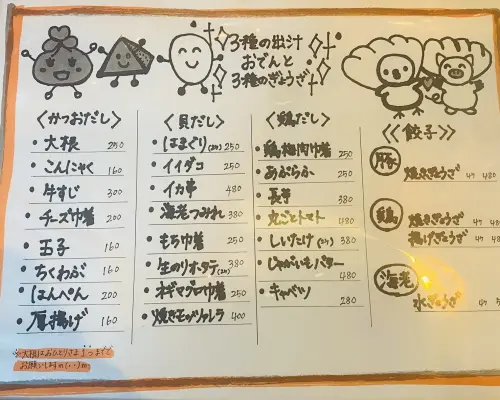 3種の出汁
おでんと
3種のぎょうざ
〈かつおだし〉
・大根 250
・こんにゃく 160
・牛すじ 300
・チーズ巾着 200
・玉子 160
・ちくわぶ 160
・はんぺん 200
・厚揚げ 160
※大根はおひとりさま1つまで
お願いします
〈貝だし〉
・はまぐり(2ケ) 250
・イイダコ 250
・イカ串 480
・海老つみれ 380
・もち巾着 250
・生のりオンタテ(2ケ) 380
・ネギマグロ巾着 250
・焼きモッツァレラ 400
〈鶏だし〉
・鶏梅肉巾着 250
・あぶらふ 250
・長芋 380
・丸ごとトマト 480
・しいたけ(2ケ) 380
・じゃがいもバター 480
・キャベツ 280
〈〈餃子〉〉
豚
焼きぎょうざ 4ケ 480
鶏
焼きぎょうざ 4ケ 480
揚げぎょうざ 4ケ 480
海老
水ぎょうざ 4ケ